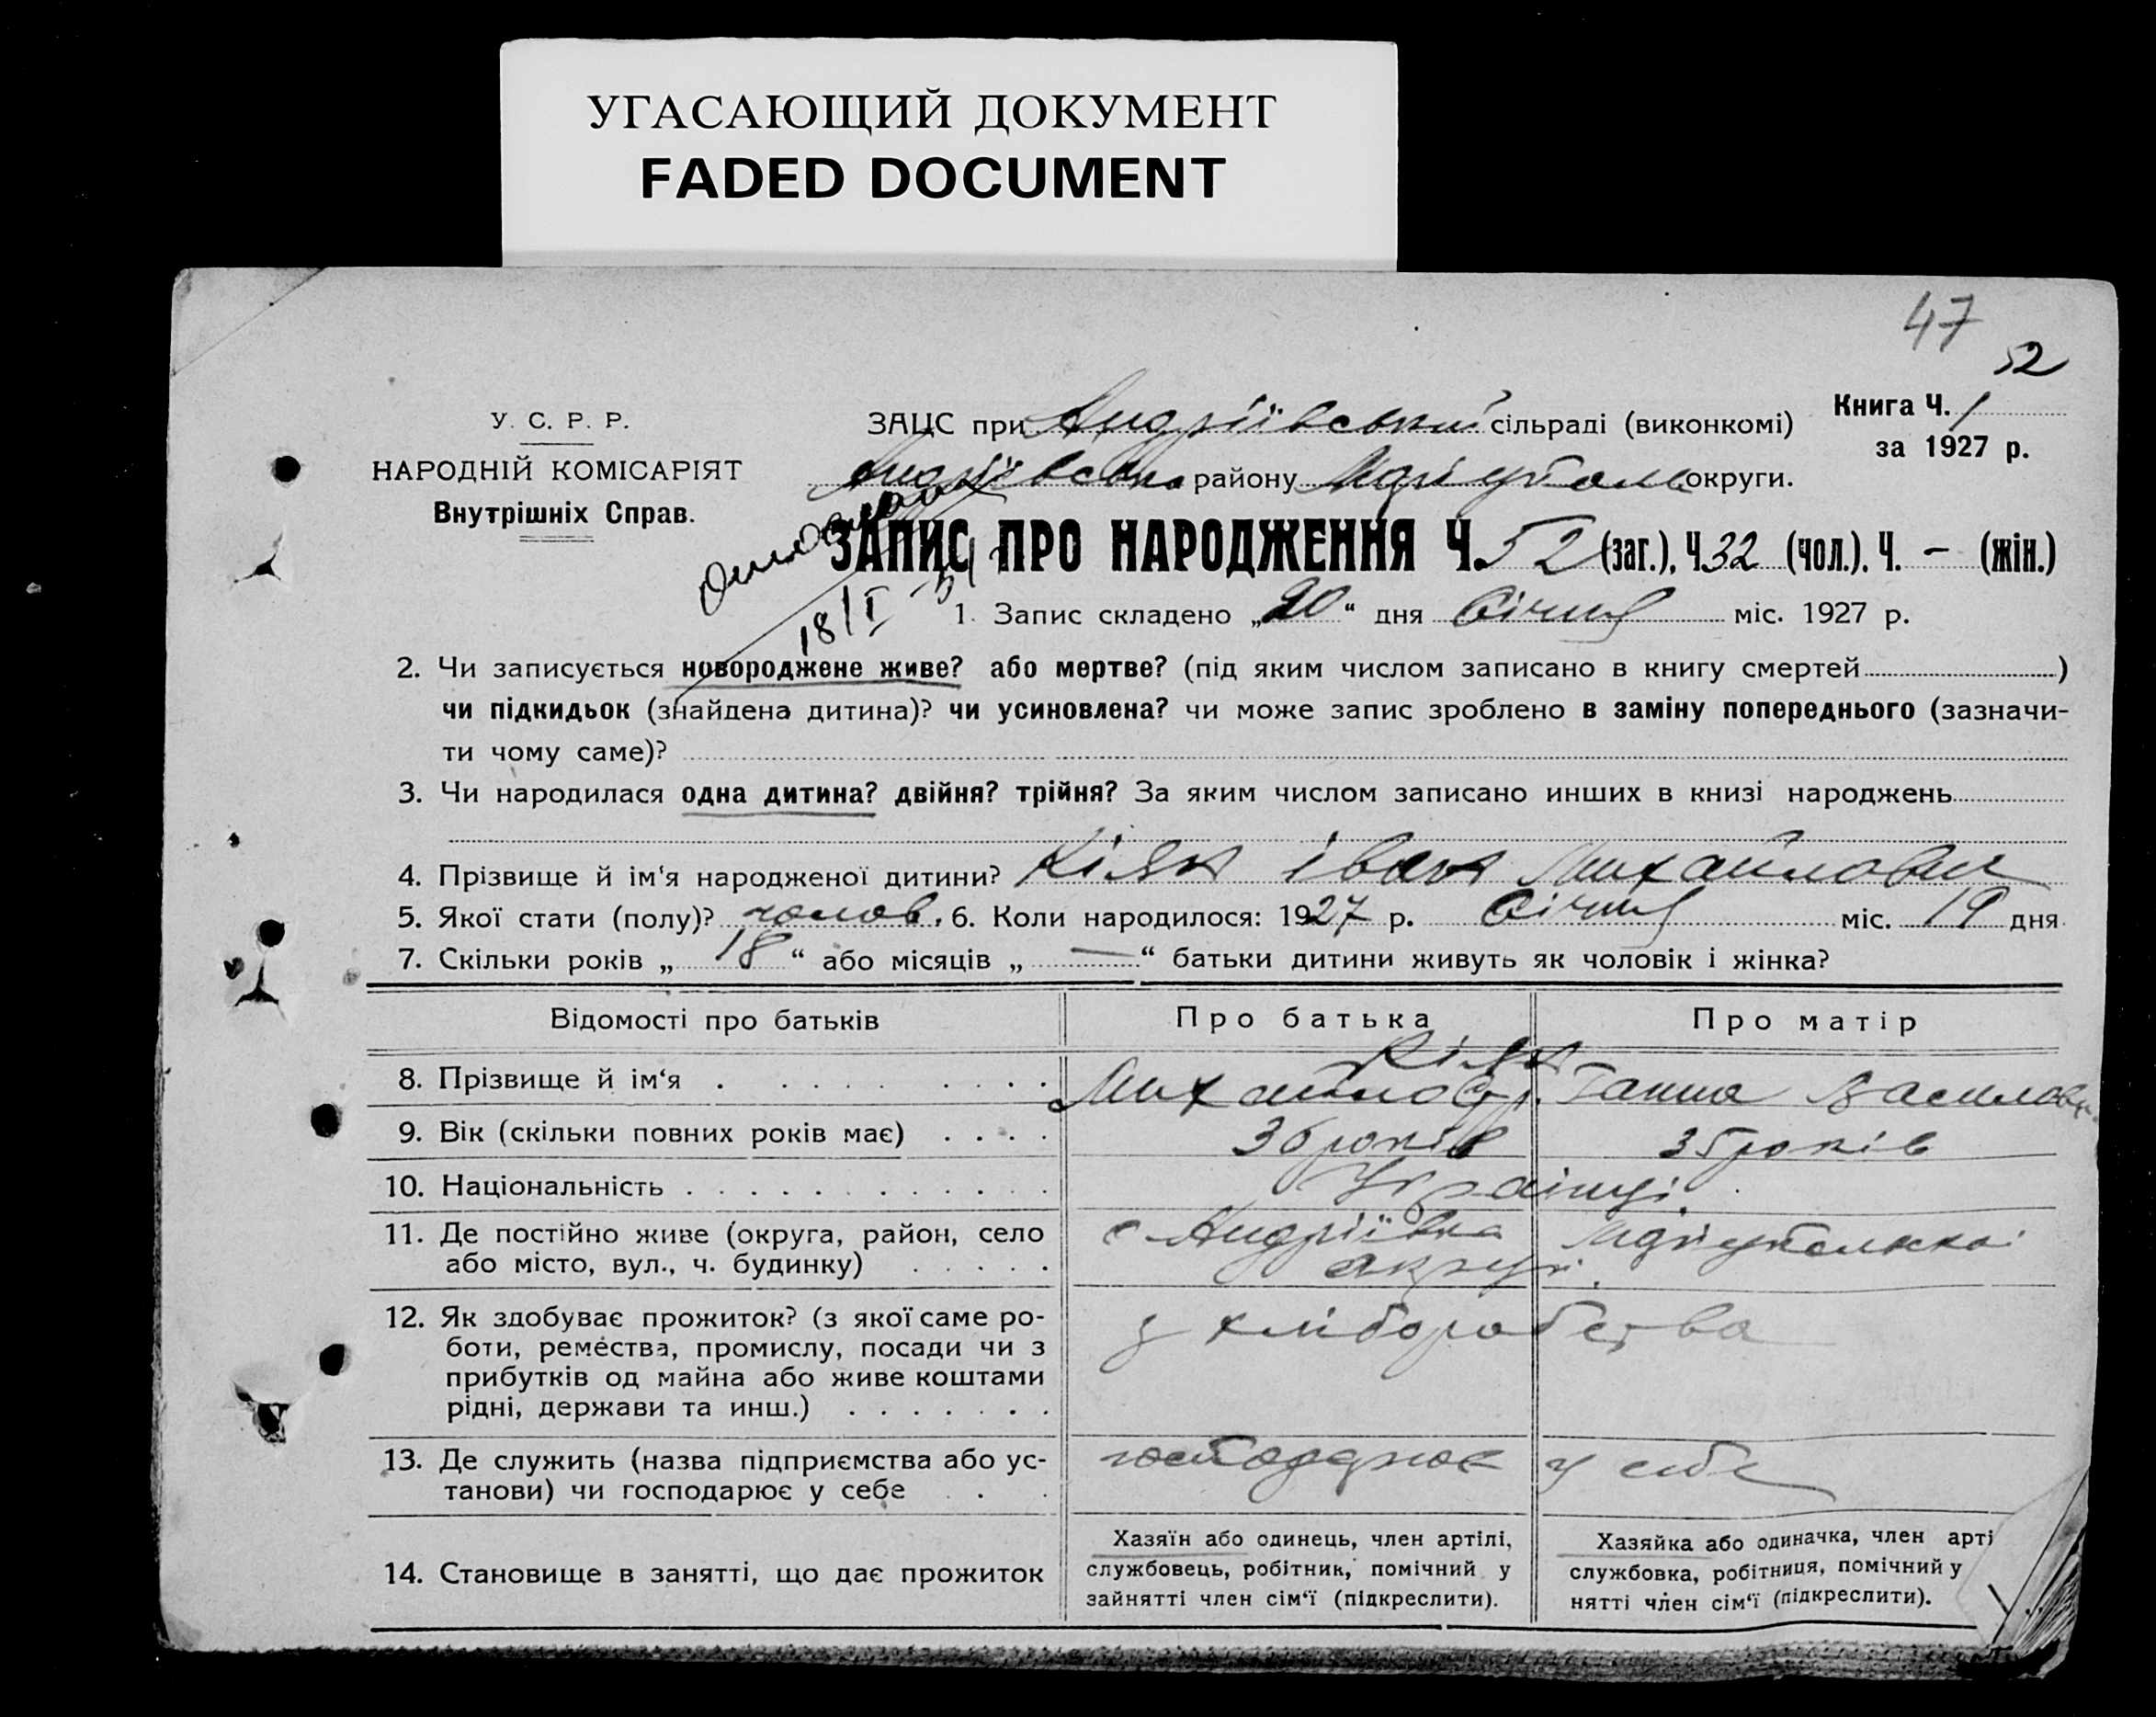 УГАСАЮЩИЙ ДОКУМЕНТ
FADED DOCUMENT
47
52
У. С. Р. Р.
НАРОДНІЙ КОМІСАРІЯТ
Внутрішніх Справ.
ЗАЦС при Андріївський сільраді (виконкомі)
Книга Ч. 1
за 1927 р.
Андріївська району Маріуполь округи.
ЗАПИС ПРО НАРОДЖЕННЯ Ч. 52 (заг.), Ч 32 (чол.). Ч. - (жін.)
18/I
1. Запис складено „20“ дня Січня міс. 1927 р.
2. Чи записується новороджене живе? або мертве? (під яким числом записано в книгу смертей )
чи підкидьок (знайдена дитина)? чи усиновлена? чи може запис зроблено в заміну попереднього (зазначи-
ти чому саме)?
3. Чи народилася одна дитина? двійня? трійня? За яким числом записано инших в книзі народжень
4. Прізвище й ім‘я народженої дитини? Кіяк іван Михайлович
5. Якої стати (полу)? чолов. 6. Коли народилося: 1927 р. Січня міс. 19 дня
7. Скільки років „ 18 “ або місяців „ — “ батьки дитини живуть як чоловік і жінка?
Відомості про батьків
Про батька
Про матір
8. Прізвище й ім‘я
Кіяк
Ганна Василів
9. Вік (скільки повних років має)
36 років
35 років
10. Національність
Українці
11. Де постійно живе (округа, район, село
або місто, вул., ч. будинку)
с Андріївка Маріупольської
округи.
12. Як здобуває прожиток? (з якої саме ро-
боти, ремества, промислу, посади чи з
прибутків од майна або живе коштами
рідні, держави та инш.)
з хліборобства
13. Де служить (назва підприємства або ус-
танови) чи господарює у себе
господарює у себе
14. Становище в занятті, що дає прожиток
Хазяїн або одинець, член артілі,
службовець, робітник, помічний у
зайнятті член сім‘ї (підкреслити).
Хазяйка або одиначка, член арті
службовка, робітниця, помічний у
нятті член сім‘ї (підкреслити).